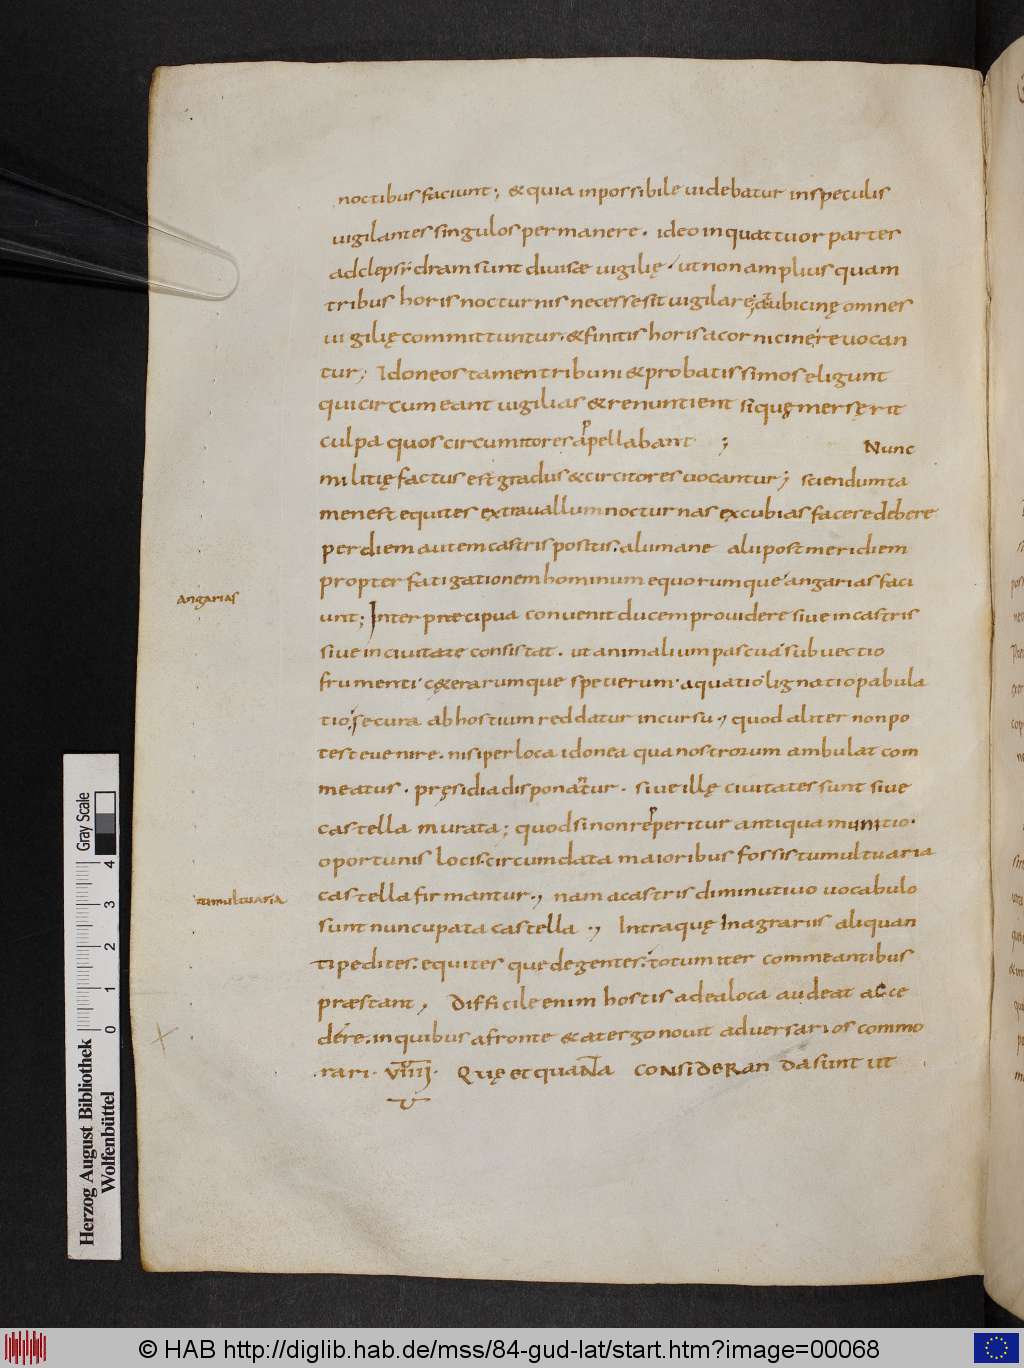 noctibus faciunt; & quia inpossibile uidebatur in speculis
uigilantes singulos permanere. ideo in quattuor partes
ad clepsydram sunt diuisæ uigilię. ut non amplius quam
tribus horis nocturnis necesse sit uigilare; a tubicinę omnes
uigilię committuntur. & finitis horis a cornicine reuocan
tur; Idoneos tamen tribuni & probatissimos eligunt
qui circumeant uigilias & renuntient si quę merserit
culpa quos circumitores apellabant ; Nunc
militię factus est gradus & circitores uocantur; sciendum ta
men est equites extra uallum nocturnas excubias facere debere
per diem autem castris positis. alii mane alii post meridiem
propter fatigationem hominum equorumque angarias faci
angarias
unt; Inter præcipua conuenit ducem prouidere siue in castris
siue in ciuitate consistat. ut animalium pascua subuectio
frumenti cęterarumque spetierum. aquatio lignatio pabula
tio. secura ab hostium reddatur incursu., quod aliter non po
test euenire. nisi per loca idonea qua nostrorum ambulat com
meatus. pręsidia disponantur. siue illę ciuitates sunt siue
castella murata; quod si non reperitur antiqua munitio.
oportunis locis. circumdata maioribus fossis tumultuaria
tumultuaria
castella firmantur., nam a castris diminutiuo uocabulo
sunt nuncupata castella ., Intra quę In agrariis aliquan
ti pedites. equites que degentes. totum iter commeantibus
præstant, Difficile enim hostis ad ea loca audeat acce
dere. in quibus a fronte & a tergo nouit aduersarios commo
rari. VIIII. Quę et quanta CONSIDERANda sunt ut
Herzog August Bibliothek
Wolfenbüttel
0 1 2 3 4
Gray Scale
© HAB http://diglib.hab.de/mss/84-gud-lat/start.htm?image=00068